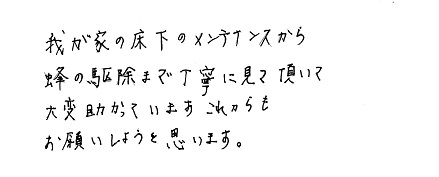 我が家の床下のメンテナンスから
蜂の駆除まで丁寧に見て頂いて
大変助かっています これからも
お願いしようと思います。